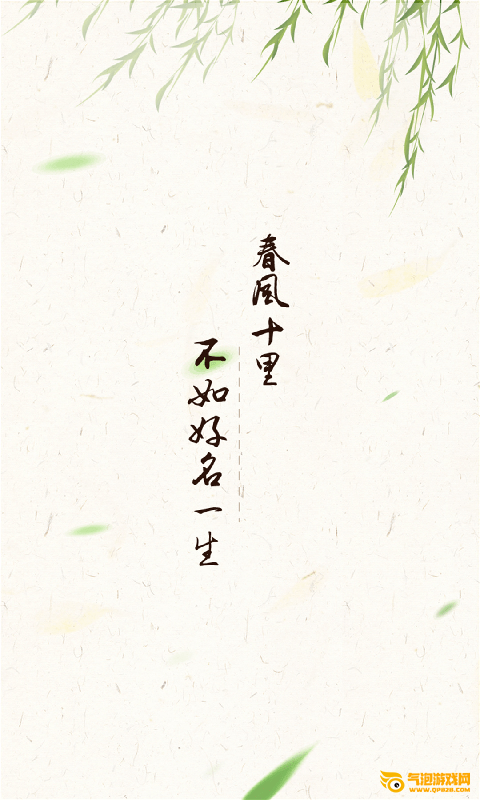 春风十里
不如好名一生
气泡游戏网
www.QPA20.com